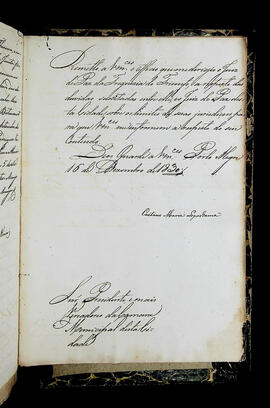 Remetto a Vm.ces o Officio que me dirigio o Juiz
de Paz da Freguezia do Triumfo, a respeito das
duvidas suscitadas entre elle, e o Juiz de Paz desta
Cidade, sobre os limites de suas jurisdições pa
ra que Vm.ces me informem a respeito do seu
Contendo.
Deos Guarde a Vm.ces Porto Alegre
16 de Dezembro de 1830
Caetano Maria Lopes Gama
Snr. Prezidente e mais
Vereadores da Camara
Municipal desta Ci
dade